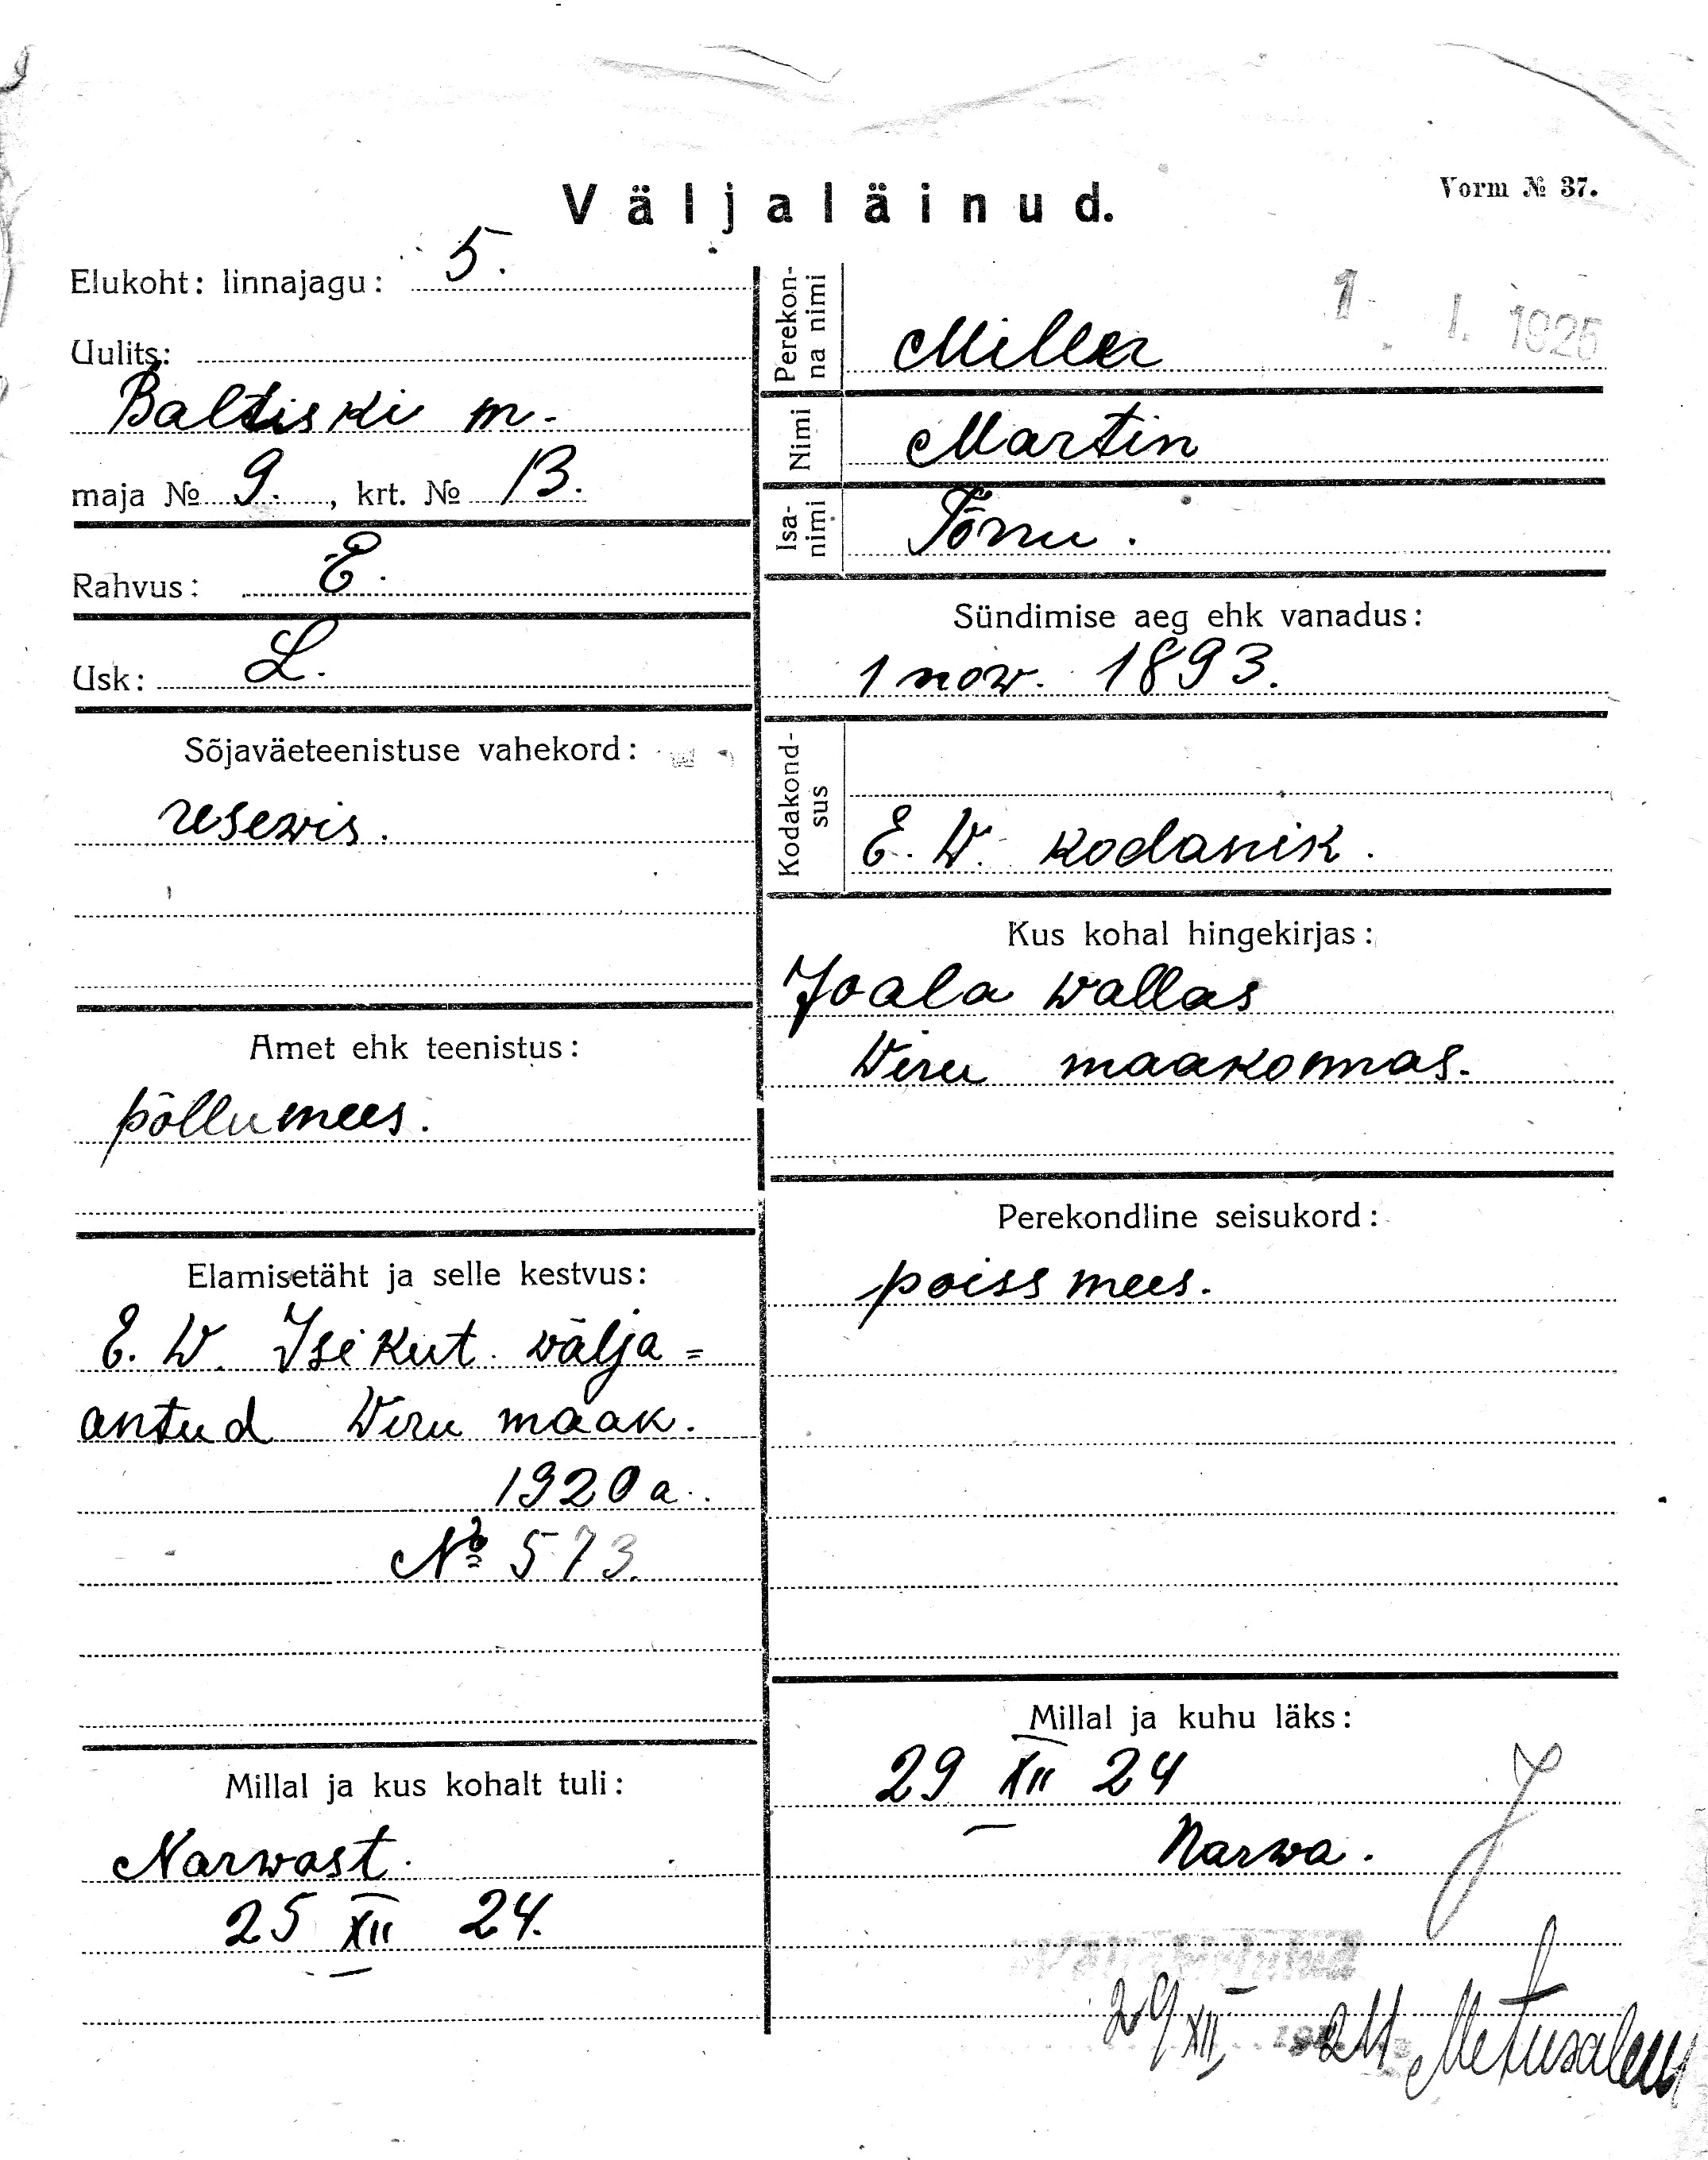 Väljaläinud.
Vorm № 37.
Elukoht: linnajagu: 5.
Uulits:
Baltiski m.
maja № 9. , krt. № 13.
Rahvus: E.
Usk: L.
Sõjaväeteenistuse vahekord:
resewis.
Amet ehk teenistus:
põllumees.
Elamisetäht ja selle kestvus:
E. W. Isikut. wälja=
antud Wiru maak.
1920 a.
№ 573.
Millal ja kus kohalt tuli:
Narwast.
25 XII 24.
1 I. 1925
Perekon-
na nimi
Miller
Nimi
Martin
Isa-
nimi
Tõnu.
Sündimise aeg ehk vanadus:
1 now. 1893.
Kodakond-
sus
E. W. kodanik.
Kus kohal hingekirjas:
Joala wallas
Wiru maakonnas.
Perekondline seisukord:
poissmees.
Millal ja kuhu läks:
29 XII 24
Narwa.
29 XII 24 Metusalem